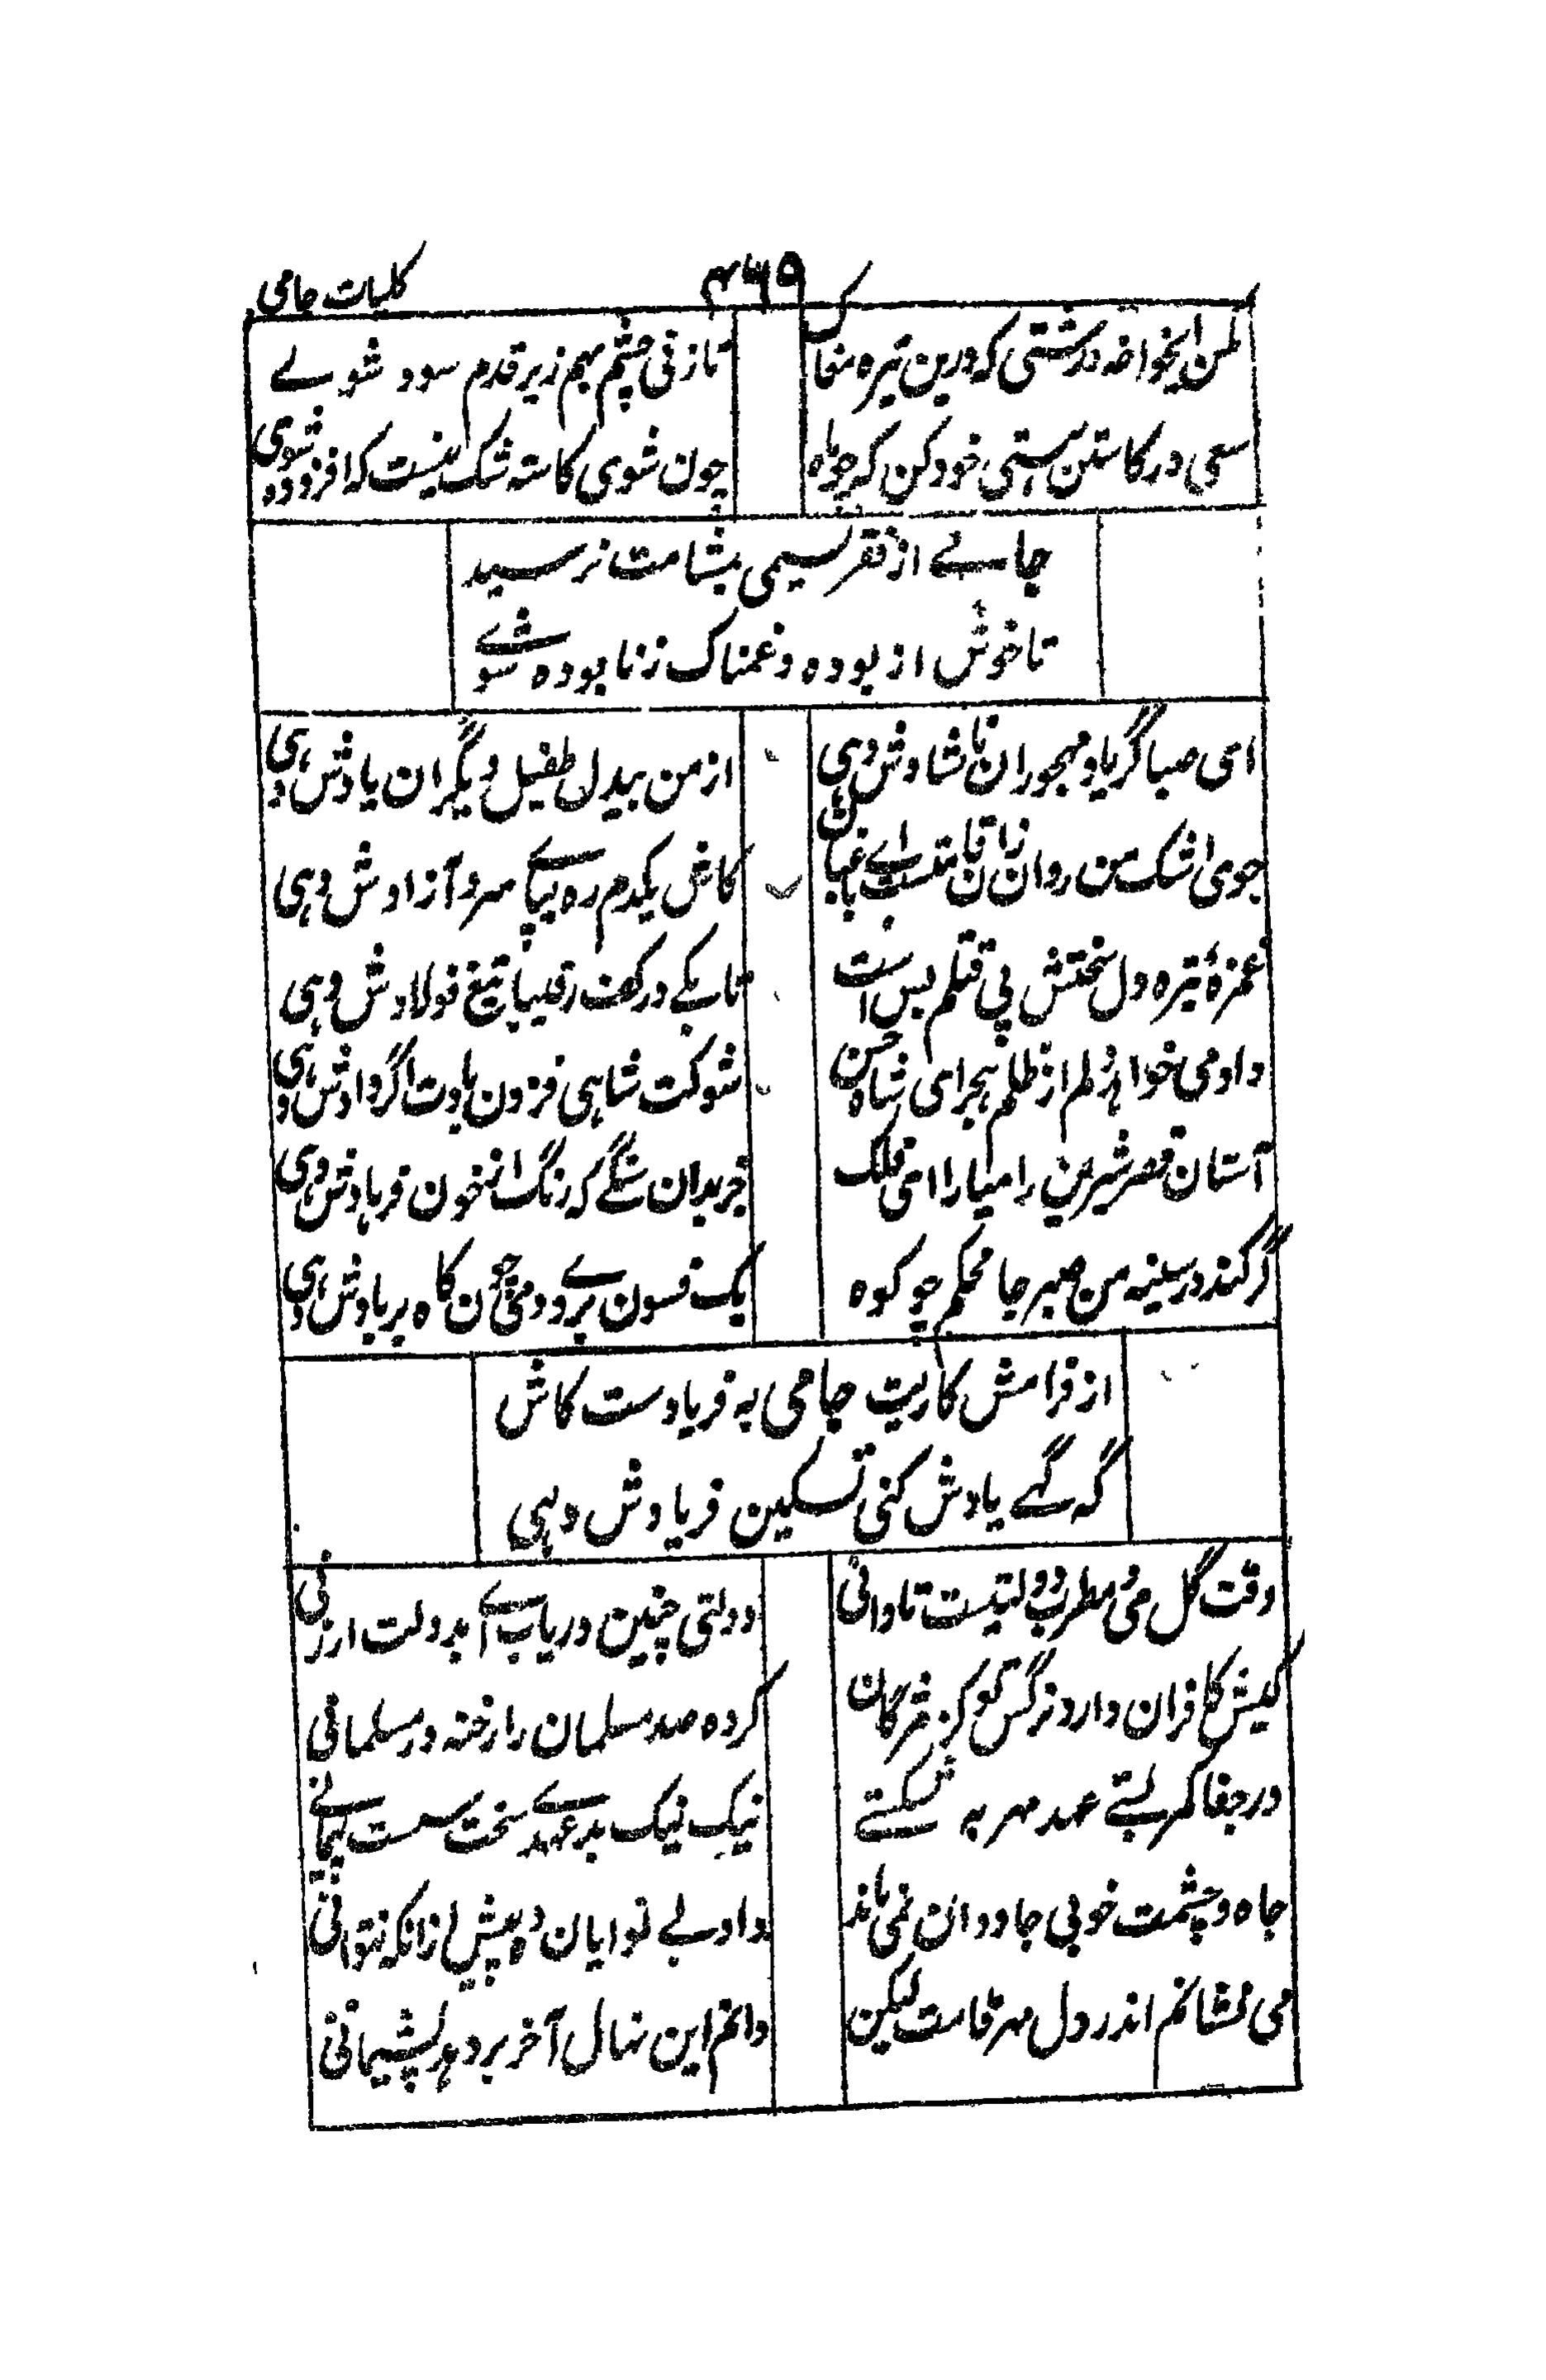 کلیات جامی
۴۶۵
مکن ایخواجه درشتی که درین تیره مغاک
تا زنی چشم بهم زیر قدم سوده شوے
سعی در کاستن هستی خود کن که چو ماه
چون شوی کاسته شک نیست که افزوده شوی
جامے از فقر نسیمی بمشامت نرسید
تا خوش از بوده و غمناک ز نابوده شوے
ای صبا گر یاد مهجوران ناشادش دهی
از من بیدل طفیل دیگران یادش دهی
جوی اشک من روان زان قامتست اے باغبان
کاش یکدم ره بپاے سرو آزادش دهی
غمزهٔ تیره دل سختش پی قتلم بس است
تا بکے در کف رقیبا تیغ فولادش دهی
داد می خواهد دلم از ظلم هجر ای شاه حسن
شوکت شاهی فزون بادت اگر دادش دهی
آستان قصر شیرین را میارا ای فلک
جز بدان سنگے که رنگ از خون فرهادش دهی
گر کند در سینه من صبر جا محکم چو کوه
یک فسون بروے دمی چون کاه بر بادش دهی
از فرامش کاریت جامی به فریادست کاش
گه گهے یادش کنی تسکین فریادش دهی
وقت گل می و مطرب دولتیست تا دانی
دولتی چنین دریاب اے بدولت ارزانی
کیش کافران دارد نرگس تو کز مژگان
کرده صد مسلمان را رخنه در مسلمانی
در جفا کمر بستے عهد مهر بشکستے
نیک نیک بدعهدے سخت سست پیمانے
جاه و حشمت خوبی جاودان نمی ماند
داد بے نوایان ده پیش از آنکه نتوانی
می نشانم اندر دل مهر قامتت لیکن
دانم این نهال آخر بر دهد پشیمانی